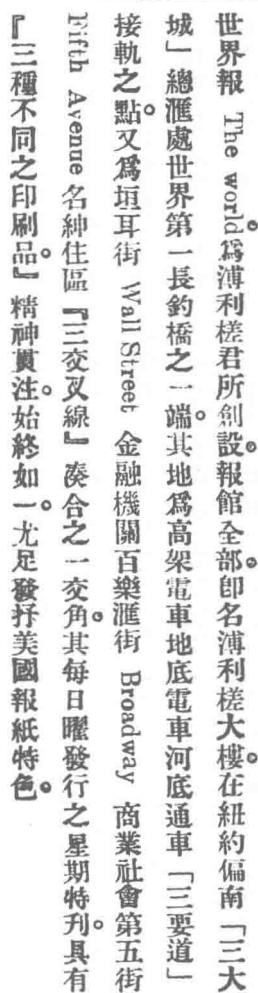 世界報 The world。爲溥利槎君所創設。報館全部。卽名溥利槎大樓。在紐約偏南「三大
城」總滙處世界第一長釣橋之一端。其地爲高架電車地底電車河底通車「三要道」
接軌之點。又爲垣耳街 Wall Street 金融機關百樂滙街 Broadway 商業社會第五街
Fifth Avenue 名紳住區『三交叉線』湊合之一交角。其每日曜發行之星期特刊。具有
『三種不同之印刷品。』精神貫注。始終如一。尤足發抒美國報紙特色。